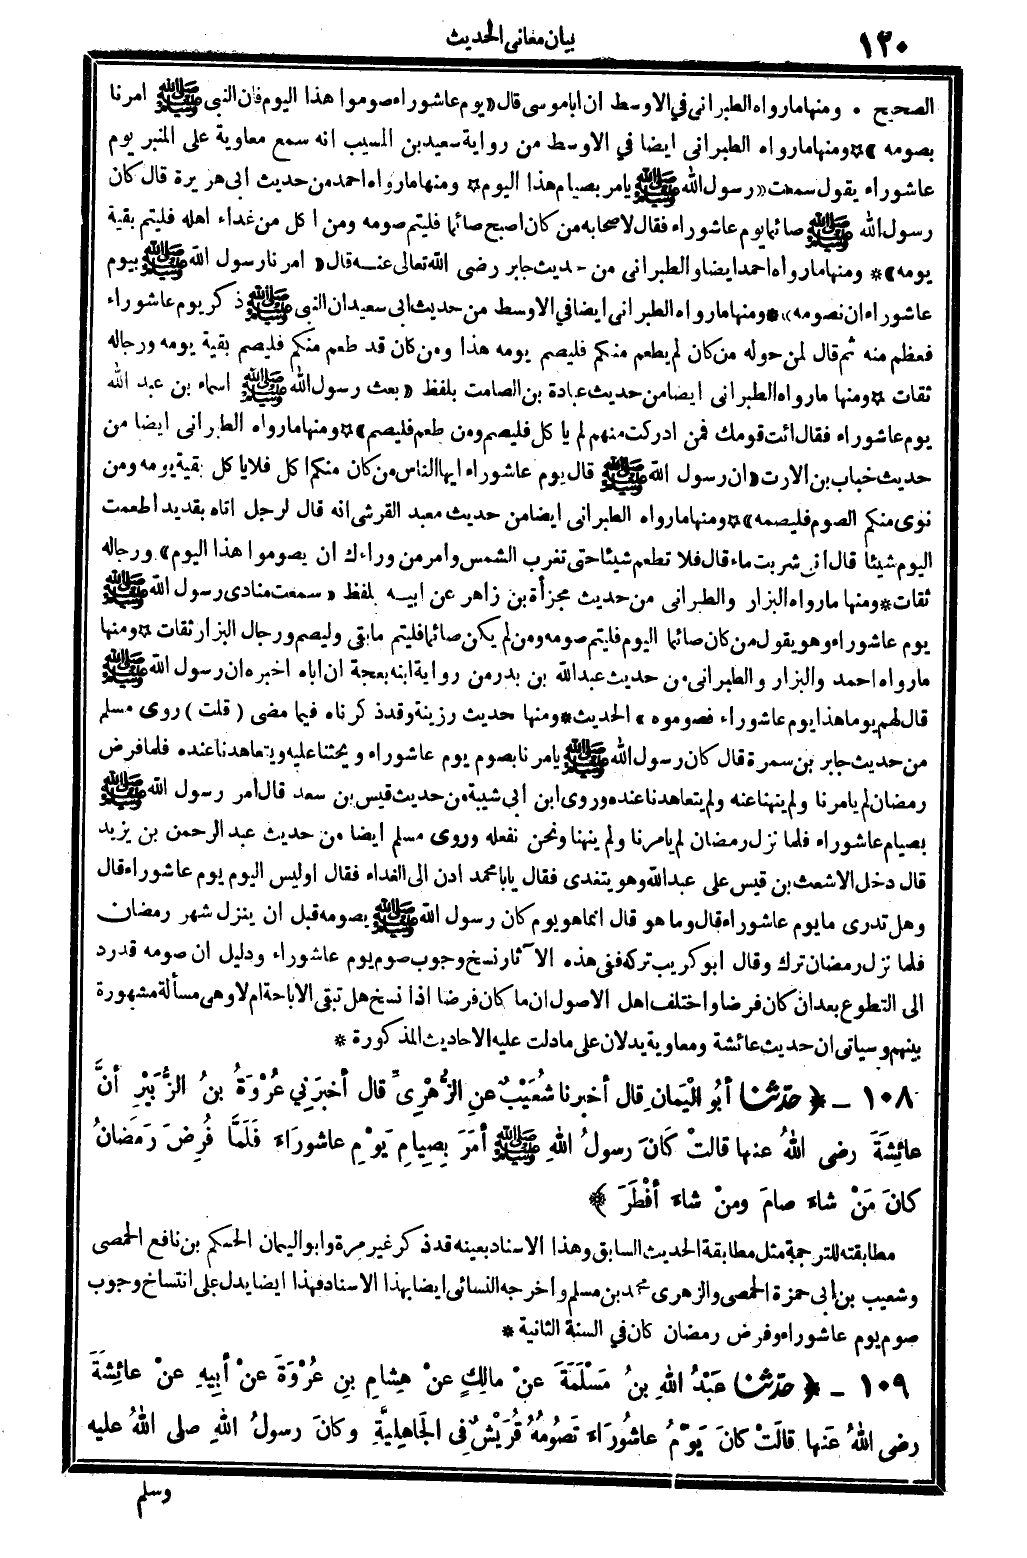 بيان معاني الحديث
١٢٠
الصحيح ٠ ومنها مارواه الطبراني في الاوسط ان اباموسى قال «يوم عاشوراء صوموا هذا اليوم فان النبي ﷺ امرنا
بصومه» ✡ ومنها مارواه الطبراني ايضا في الاوسط من رواية سعيد بن المسيب انه سمع معاوية على المنبر يوم
عاشوراء يقول سمعت «رسول الله ﷺ يامر بصيام هذا اليوم ✡ ومنها مارواه احمد من حديث ابى هريرة قال كان
رسول الله ﷺ صائما يوم عاشوراء فقال لاصحابه من كان اصبح صائما فليتم صومه ومن اكل من غداء اهله فليتم بقية
يومه» * ومنها مارواه احمد ايضا والطبراني من حديث جابر رضى الله تعالى عنه قال «امرنا رسول الله ﷺ بيوم
عاشوراء ان نصومه» * ومنها مارواه الطبراني ايضا في الاوسط من حديث ابى سعيد ان النبي ﷺ ذكر يوم عاشوراء
فعظم منه ثم قال لمن حوله من كان لم يطعم منكم فليصم يومه هذا ومن كان قد طعم منكم فليصم بقية يومه ورجاله
ثقات ✡ ومنها مارواه الطبراني ايضا من حديث عبادة بن الصامت بلفظ «بعث رسول الله ﷺ اسماء بن عبد الله
يوم عاشوراء فقال ائت قومك فمن ادركت منهم لم يا كل فليصم ومن طعم فليصم» ✡ ومنها مارواه الطبراني ايضا من
حديث خباب بن الارت «ان رسول الله ﷺ قال يوم عاشوراء ايها الناس من كان منكم اكل فلايا كل بقية يومه ومن
نوى منكم الصوم فليصمه» ✡ ومنها مارواه الطبراني ايضا من حديث معبد القرشي انه قال لرجل اتاه بقديد أطعمت
اليوم شيئا قال اني شربت ماء قال فلا تطعم شيئا حتى تغرب الشمس وامر من وراءك ان يصوموا هذا اليوم» ورجاله
ثقات * ومنها مارواه البزار والطبراني من حديث مجزأة بن زاهر عن ابيه بلفظ «سمعت منادى رسول الله ﷺ
يوم عاشوراء وهو يقول من كان صائما اليوم فليتم صومه ومن لم يكن صائما فليتم مابقى وليصم ورجال البزار ثقات ✡ ومنها
مارواه احمد والبزار والطبراني من حديث عبدالله بن بدر من رواية ابنه بعجة ان اباه اخبره ان رسول الله ﷺ
قال لهم يوما هذا يوم عاشوراء فصوموه» الحديث * ومنها حديث رزينة وقد ذكرناه فيما مضى (قلت) روى مسلم
من حديث جابر بن سمرة قال كان رسول الله ﷺ يامرنا بصوم يوم عاشوراء ويحثنا عليه ويتعاهدنا عنده فلما فرض
رمضان لم يامرنا ولم ينهنا عنه ولم يتعاهدنا عنده وروى ابن ابي شيبة من حديث قيس بن سعد قال أمر رسول الله ﷺ
بصيام عاشوراء فلما نزل رمضان لم يامرنا ولم ينهنا ونحن نفعله وروى مسلم ايضا من حديث عبد الرحمن بن يزيد
قال دخل الاشعث بن قيس على عبدالله وهو يتغدى فقال يابا محمد ادن الى الغداء فقال اوليس اليوم يوم عاشوراء قال
وهل تدرى مايوم عاشوراء قال وما هو قال انما هو يوم كان رسول الله ﷺ يصومه قبل ان ينزل شهر رمضان
فلما نزل رمضان ترك وقال ابوكريب تركه ففي هذه الآثار نسخ وجوب صوم يوم عاشوراء ودليل ان صومه قدرد
الى التطوع بعد ان كان فرضا واختلف اهل الاصول ان ما كان فرضا اذا نسخ هل تبقى الاباحة ام لا وهى مسألة مشهورة
بينهم وسياتي ان حديث عائشة ومعاوية يدلان على مادلت عليه الاحاديث المذكورة *
١٠٨ - ﴿حدثنا أبُو اليَمانِ قال أخبرنا شُعَيْبٌ عنِ الزُّهْرِىِّ قال أخبرَني عُرْوَةُ بنُ الزُّبَيْرِ أنَّ
عائِشَةَ رضى اللهُ عنها قالتْ كانَ رسولُ اللهِ ﷺ أمَرَ بِصِيامِ يَوْمِ عاشورَاءَ فَلَمَّا فُرِضَ رَمَضانُ
كانَ مَنْ شاءَ صامَ ومنْ شاءَ أفْطَرَ﴾ *
مطابقته للترجمة مثل مطابقة الحديث السابق وهذا الاسناد بعينه قد ذكر غير مرة وابو اليمان الحكم بن نافع الحمصى
وشعيب بن ابى حمزة الحمصى والزهرى محمد بن مسلم واخرجه النسائى ايضا بهذا الاسناد فهذا ايضا يدل على انتساخ وجوب
صوم يوم عاشوراء وفرض رمضان كان في السنة الثانية *
١٠٩ - ﴿حدثنا عَبْدُ اللهِ بنُ مَسْلَمَةَ عنْ مالِكٍ عنْ هِشامِ بنِ عُرْوَةَ عنْ أبيهِ عنْ عائِشَةَ
رضى اللهُ عَنها قالَتْ كانَ يَوْمُ عاشُورَاءَ تَصُومُهُ قُرَيْشٌ فِى الجَاهِليَّةِ وكانَ رسولُ اللهِ صلى اللهُ عليه
وسلم